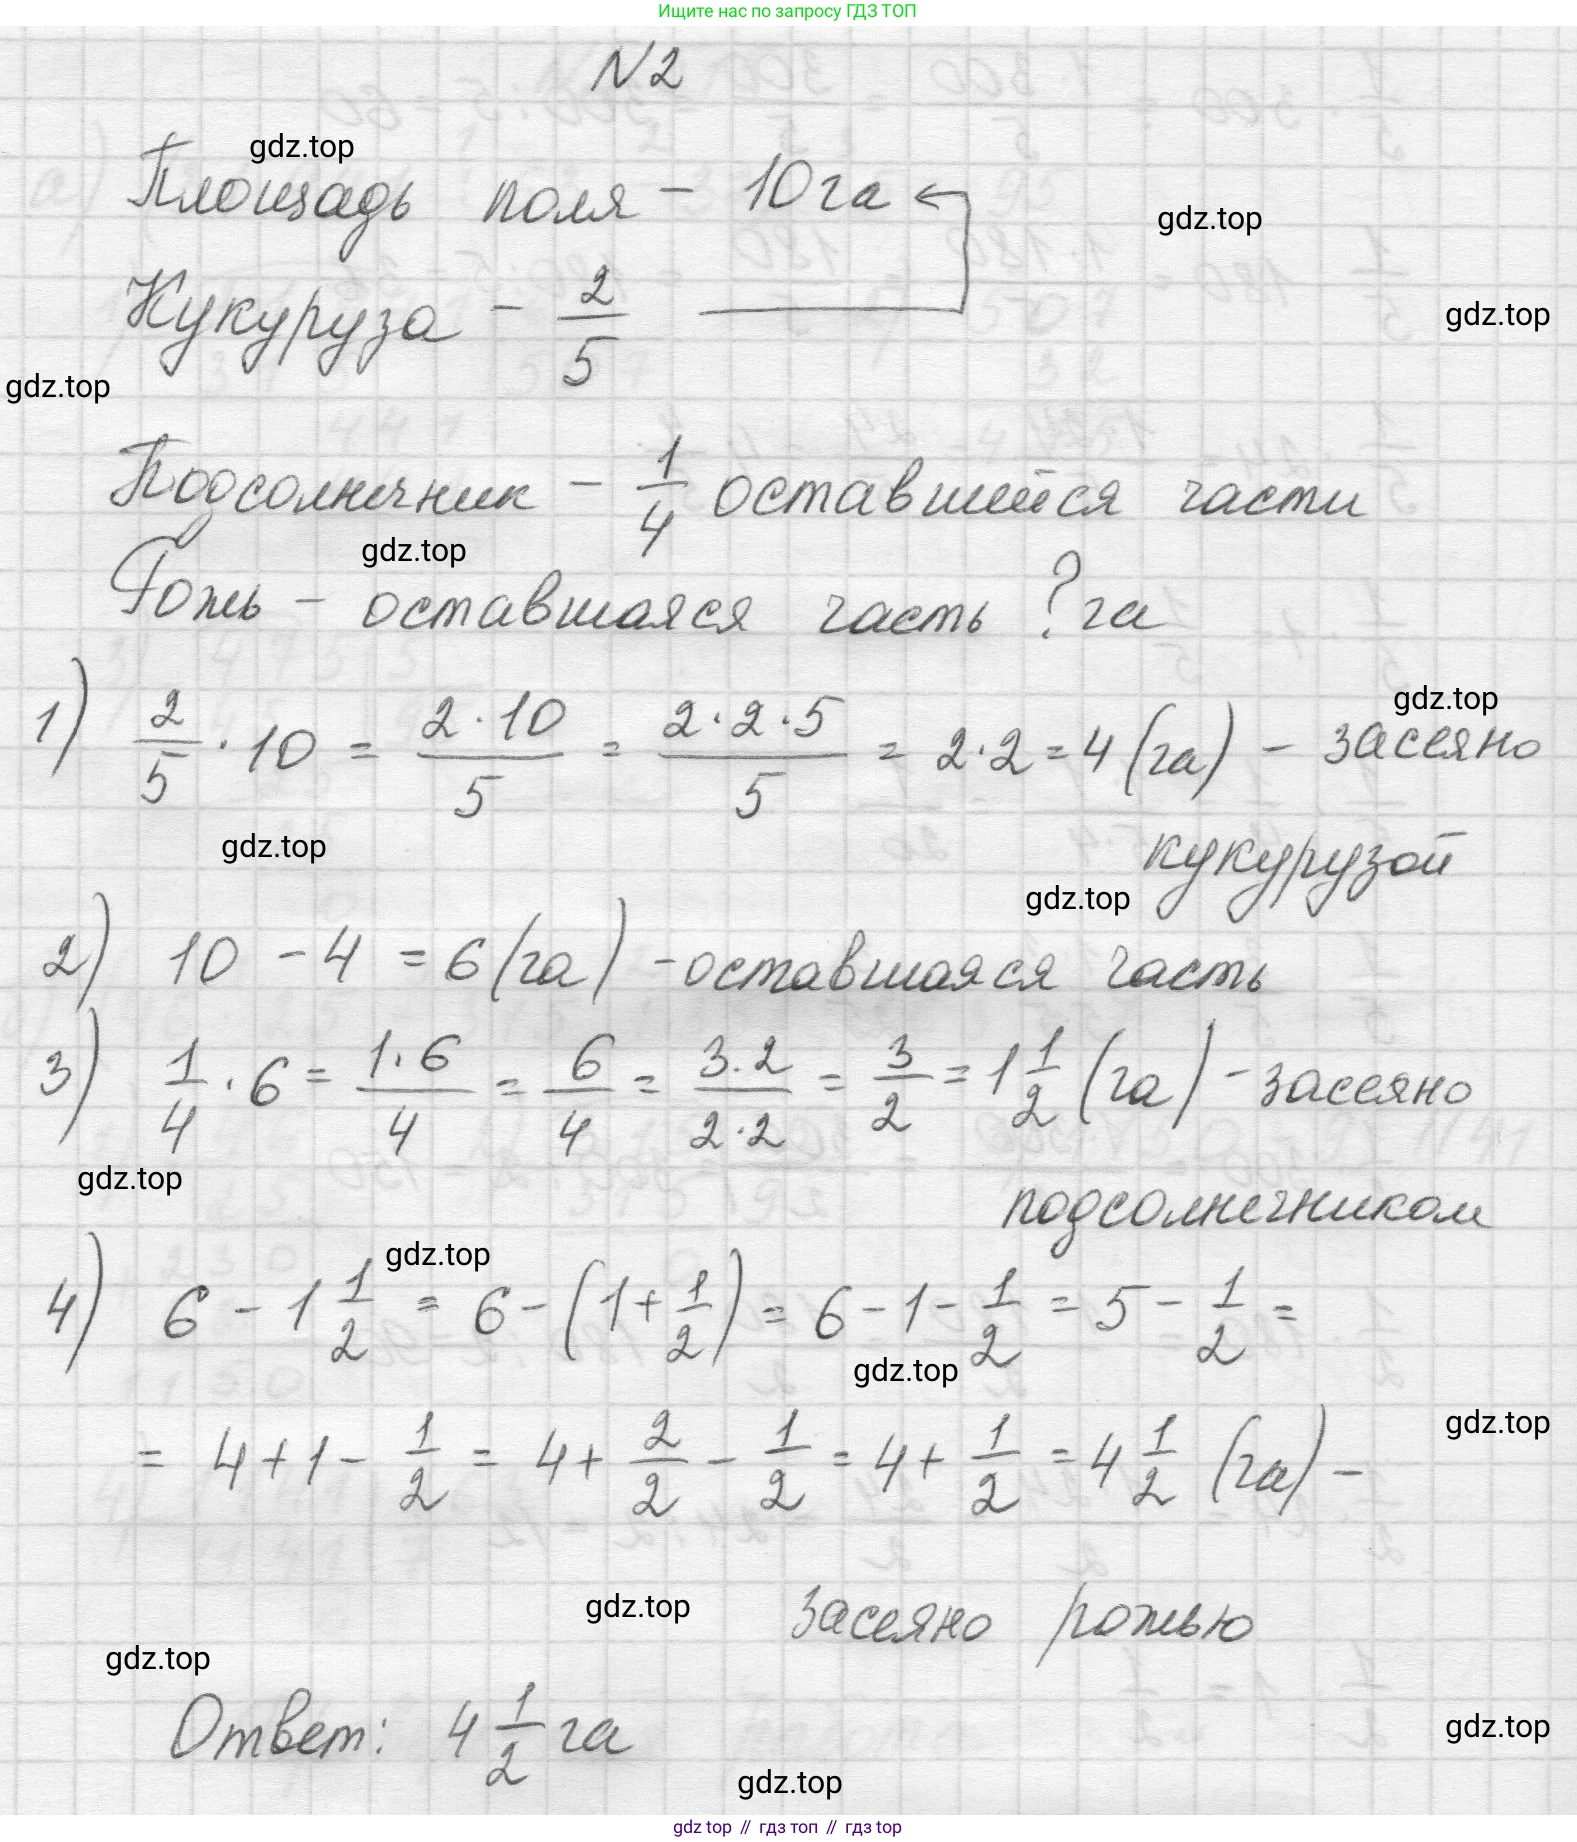 Ищите нас по запросу ГДЗ ТОП
N2
gdz.top
Площадь поля – 10 га
gdz.top
Кукуруза – 2/5
gdz.top
gdz.top
Подсолнечник – 1/4 оставшейся части
gdz.top
Рожь – оставшаяся часть ? га
gdz.top
1) 2/5 · 10 = 2·10/5 = 2·2·5/5 = 2·2 = 4 (га) – засеяно
gdz.top
кукурузой
gdz.top
2) 10 – 4 = 6 (га) – оставшаяся часть
3) 1/4 · 6 = 1·6/4 = 6/4 = 3·2/2·2 = 3/2 = 1 1/2 (га) – засеяно
gdz.top
подсолнечником
gdz.top
4) 6 – 1 1/2 = 6 – (1 + 1/2) = 6 – 1 – 1/2 = 5 – 1/2 =
gdz.top
gdz.top
= 4 + 1 – 1/2 = 4 + 2/2 – 1/2 = 4 + 1/2 = 4 1/2 (га) –
gdz.top
засеяно рожью
gdz.top
Ответ: 4 1/2 га
gdz.top
gdz.top
gdz top // гдз топ // гдз top